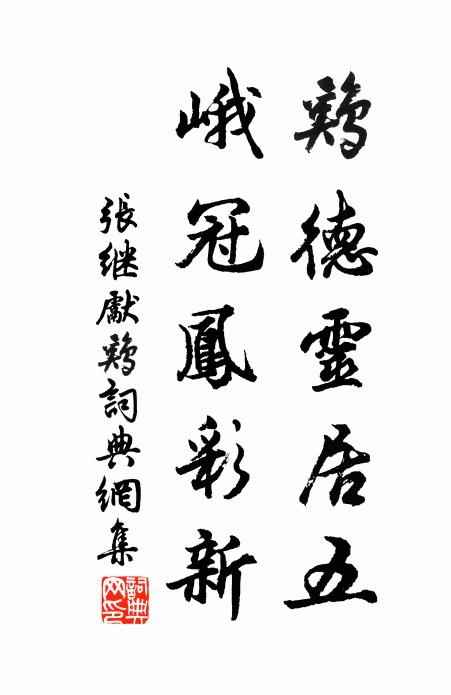 鷄德靈居五
峨冠鳳彩新
張继獻鷄詞典網集
詞典网印